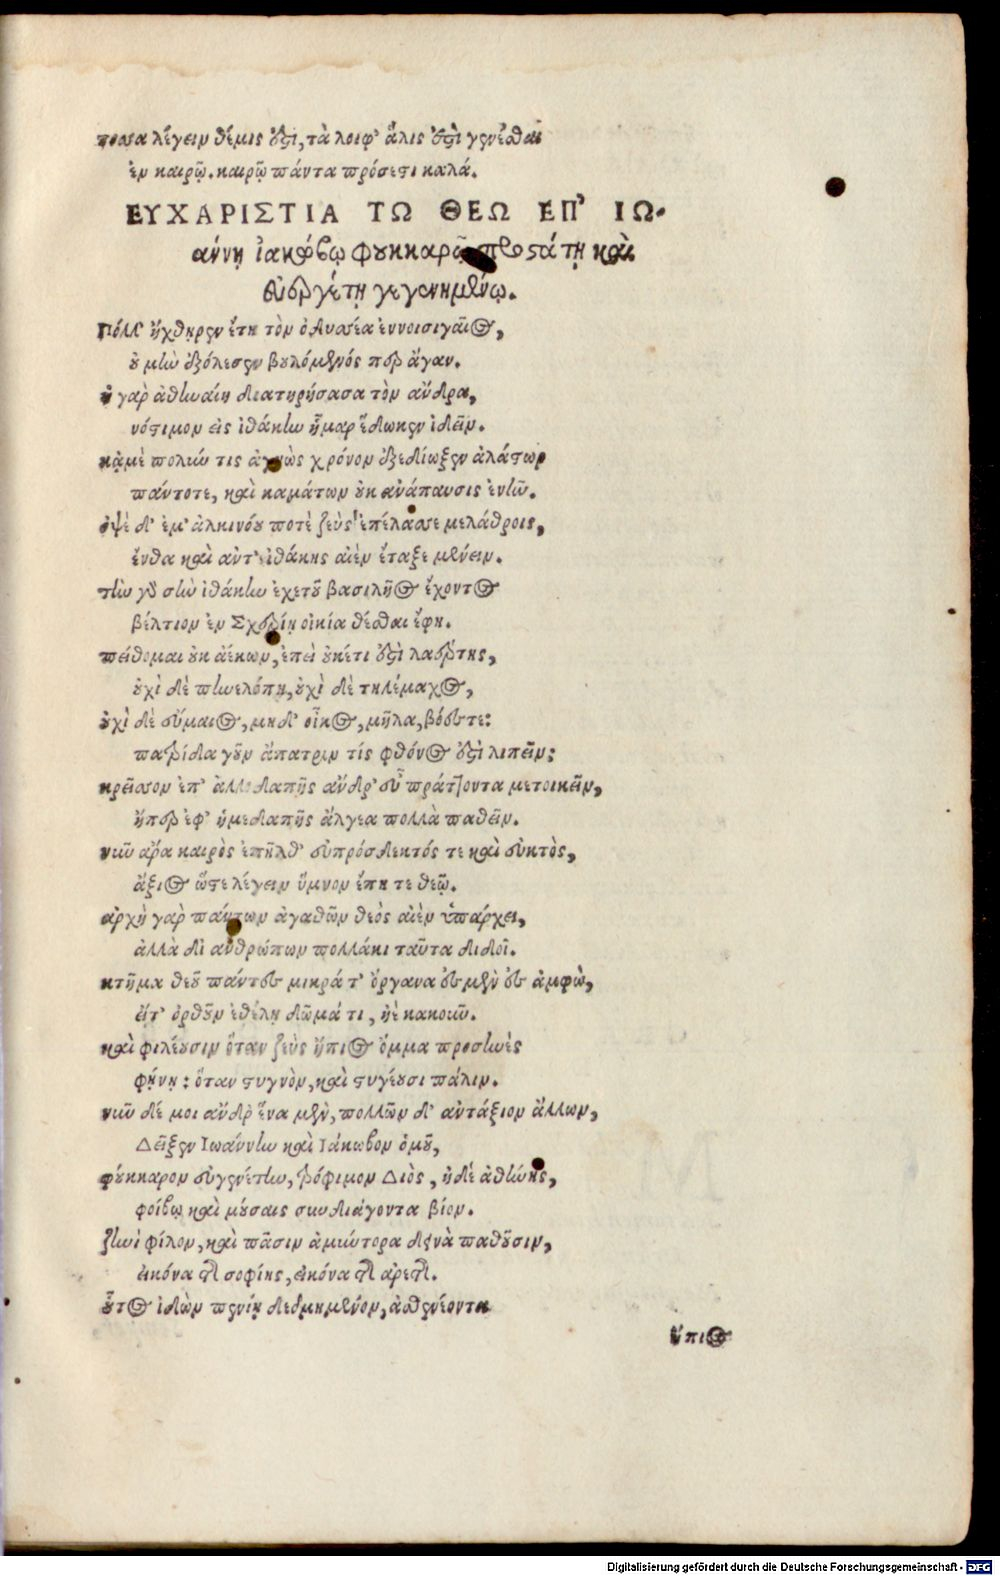 τόσσα λέγειν θέμις ἐστὶ, τὰ λοιφ' ἅλις ἐστὶ γενέσθαι
ἐν καιρῷ. καιρῷ πάντα πρόσεστι καλά.
ΕΥΧΑΡΙΣΤΙΑ ΤΩ ΘΕΩ ΕΠ' ΙΩ-
άννῃ ἰακώβῳ φουκκαρῷ προστάτῃ καὶ
εὐεργέτῃ γεγενημένῳ.
Πόλλ' ἤχθηρεν ἔτη τὸν ὀδυσσέα ἐννοσιγαῖος,
οὐ μὴν ἐξόλεσεν βουλόμενός περ ἄγαν.
ἡ γὰρ ἀθηναίη διατηρήσασα τὸν ἄνδρα,
νόστιμον εἰς ἰθάκην ἦμαρ ἔδωκεν ἰδεῖν.
κᾀμὲ πολύν τις ἁγνὼς χρόνον ἐξεδίωξεν ἀλάστωρ
πάντοτε, καὶ καμάτων οὐκ ἀνάπαυσις ἐνῆν.
ὀψὲ δ' ἐμ' ἀλκινόου ποτὲ ζεὺς ἐπέλασσε μελάθροις,
ἔνθα καὶ αὖτ' ἰθάκης αἰὲν ἔταξε μένειν.
τὴν γοῦν σὴν ἰθάκην ἐχετοῦ βασιλῆος ἔχοντος
βέλτιον ἐν Σχερίῃ οἰκία θέσθαι ἔφη.
πείθομαι οὐκ ἀέκων, ἐπεὶ οὐκέτι ἐστὶ λαέρτης,
οὐχὶ δὲ πηνελόπη, οὐχὶ δὲ τηλέμαχος,
οὐχὶ δὲ εὔμαιος, μηδ' οἶκος, μῆλα, βόες τε:
πατρίδα γοῦν ἄπατριν τίς φθόνος ἐστὶ λιπεῖν;
κρεῖσσον ἐπ' ἀλλοδαπῆς ἄνδρ' εὖ πράττοντα μετοικεῖν,
ἤπερ ἐφ' ἡμεδαπῆς ἄλγεα πολλὰ παθεῖν.
νῦν ἄρα καιρὸς ἐπῆλθ' εὐπρόσδεκτός τε καὶ εὐκτὸς,
ἄξιος ὥστε λέγειν ὕμνον ἔπη τε θεῷ.
ἀρχὴ γὰρ πάντων ἀγαθῶν θεὸς αἰὲν ὑπάρχει,
ἀλλὰ δι' ἀνθρώπων πολλάκι ταῦτα διδοῖ.
κτῆμα θεοῦ πάντες μικρά τ' ὄργανα ἐς μὲν ἐς ἄμφω,
εἴτ' ὀρθοῦν ἐθέλῃ δῶμά τι, ἠὲ κακοῦν.
καὶ φιλέουσιν ὅταν ζεὺς ἤπιος ὄμμα προσηνὲς
φήνῃ: ὅταν στυγνὸν, καὶ στυγέουσι πάλιν.
νῦν δέ μοι ἄνδρ' ἕνα μὲν, πολλῶν δ' ἀντάξιον ἄλλων,
Δεῖξεν Ἰωάννην καὶ Ἰάκωβον ὁμοῦ,
φούκκαρον εὐγενέτην, τρόφιμον Διὸς, ἠδὲ ἀθήνης,
φοίβῳ καὶ μούσαις συνδιάγοντα βίον.
ζηνὶ φίλον, καὶ πᾶσιν ἀμύντορα δεινὰ παθοῦσιν,
εἰκόνα τῆς σοφίης, εἰκόνα τῆς ἀρετῆς.
οὗτος ἰδὼν πενίῃ δεδμημένον, ἀσθενέοντα
ἤπιος